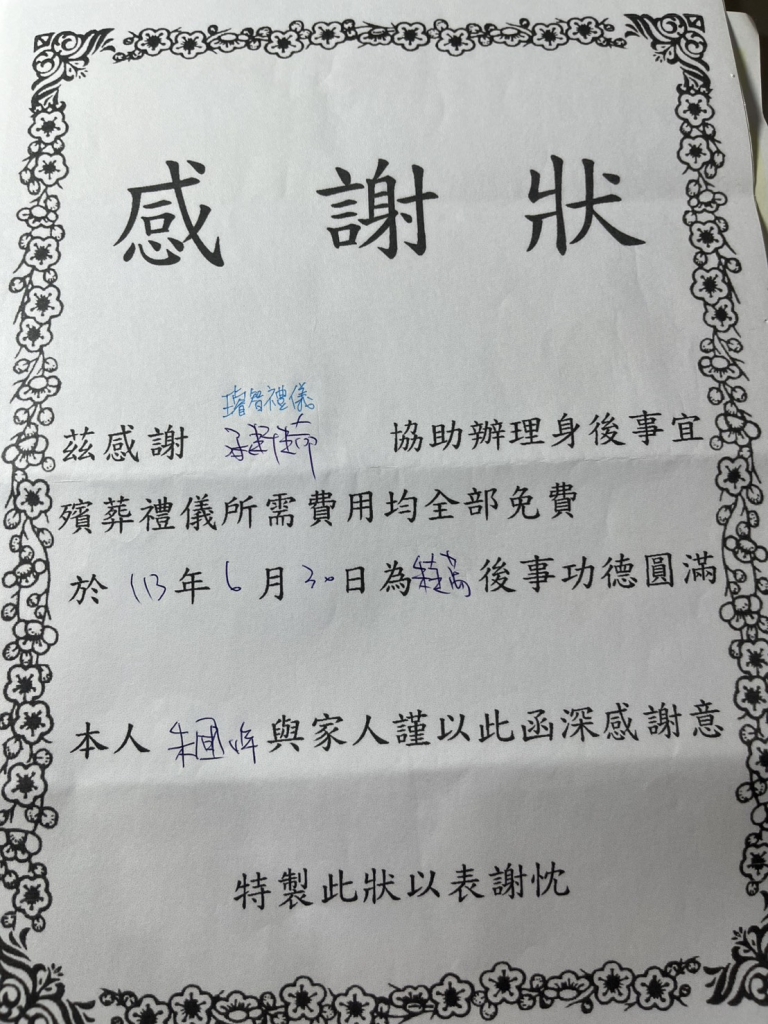 感謝狀
睿智禮儀
茲感謝 協助辦理身後事宜
殯葬禮儀所需費用均全部免費
於 113 年 6 月 30 日為 後事功德圓滿
本人 朱國 與家人謹以此函深感謝意
特製此狀以表謝忱